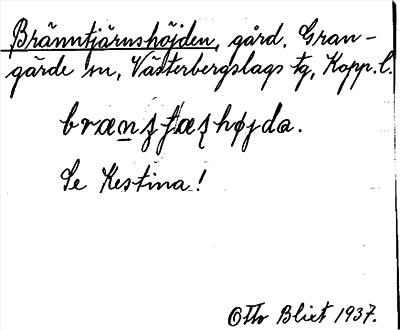 Bränntjärnshöjden, gård. Gran-
gärde sn, Västerbergslags tg, Kopp. l.
Se Kestina!
Otto Blixt 1937.